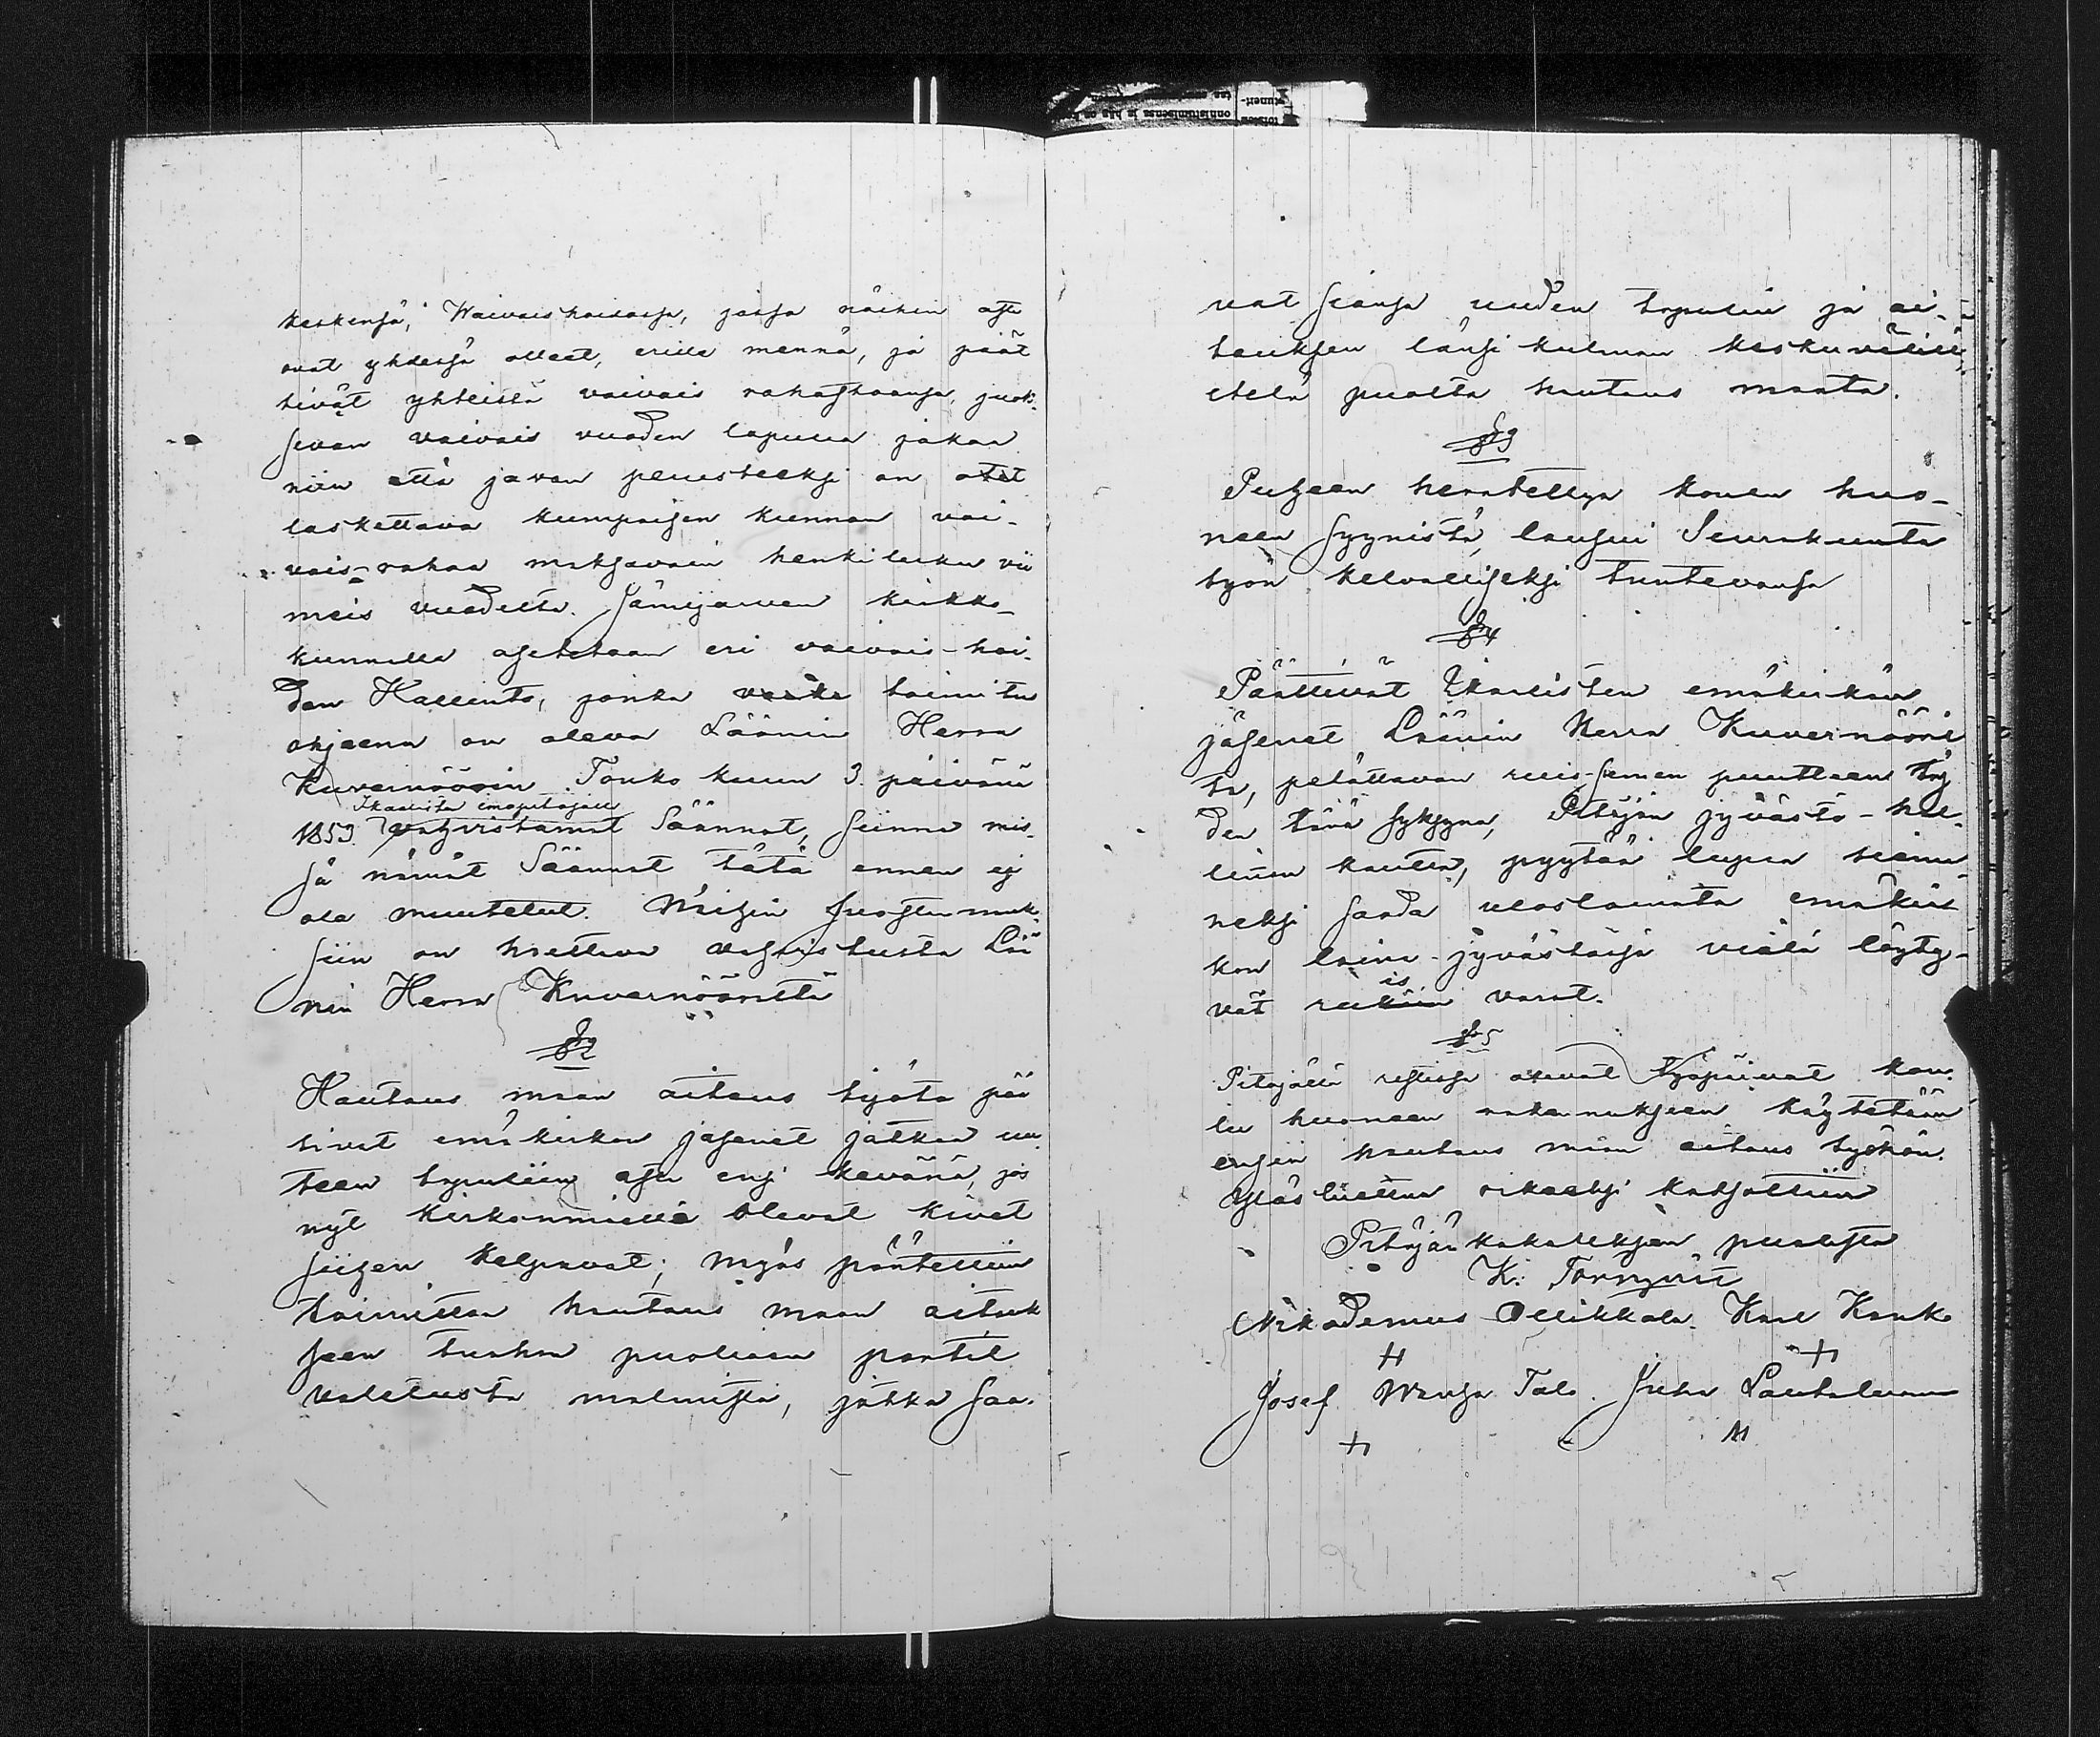 keskensä, Waivaishoidossa, jossa näihin asti
ovat yhdessä olleet, erille mennä, ja päät
tivät yhteistä vaivais rahastoansa, juok-
sevan vaivais vuoden lopussa jakaa
niin että javon perusteeksi on otet
laskettava kumpaisen kunnan vai-
vais-rahaa maksavain henkiluku vii
meis vuodelta. Jämijärven kirkko-
kunnalle asetetaan eri vaivais-hoi-
don Hallinto, jonka toimitus
ohjeena on oleva Läänin Herra
Kuvernöörin Touko kuun 3. päivänä
Ikaalista imapitäjälle
1853 vahvistamat Säännöt, siinnä mis-
sä nämät Säännöt tätä ennen ej
ole muutetut. Näihin suostumuk-
siin on haettava vahvistusta Lää
nin Herra Kuvernööriltä
§ 2
Hautaus maan aitaus työtä pää
tivat emäkirkon jäsenet jatkaa uu-
teen tapuliin asti ensi keväänä, jos
nyt kirkonmäellä olevat kivet
siihen kelpaavat; myös päätettiin
toimittaa hautaus maan aitauk
seen tuohon puoliseen portit
valetusta malmista, jotka saa-
vat siansa uuden tapulin ja ai-
tauksen länsi kulman keskuvälillä,
etelä puolta hautaus maata.
§ 3
Puheen heratellyn koulu huo-
neen syynistä, lausui Seurakunta
työn kelvolliseksi tuntevansa
§ 4
Päättivät Ikalisten emäkirkon
jäsenet Läänin Herra Kuvernööril
tä, pelättävan ruis-siemen puutteen täh
den tänä syksynä, Pitäjän jyvästö-hal-
linon kautta, pyytää lupaa sieme-
neksi saada uloslainata emäkir
kon laina-jyvästöisä vielä löyty-
is
vät ruk͏iin varat.
§ 5
Pitäjällä restissä olevat työpäivät kou-
lu huoneen rakennukseen käytetään
ensin hautaus maan aitaus työhön.
Ylös luettua oikaeksi katsottiin
Pitäjän kokouksen puolesta
K. Törnqvist
Nikodemus Ollikkala. Karl Kouko
Josef Wanha Talo. Juha Lautaluoma